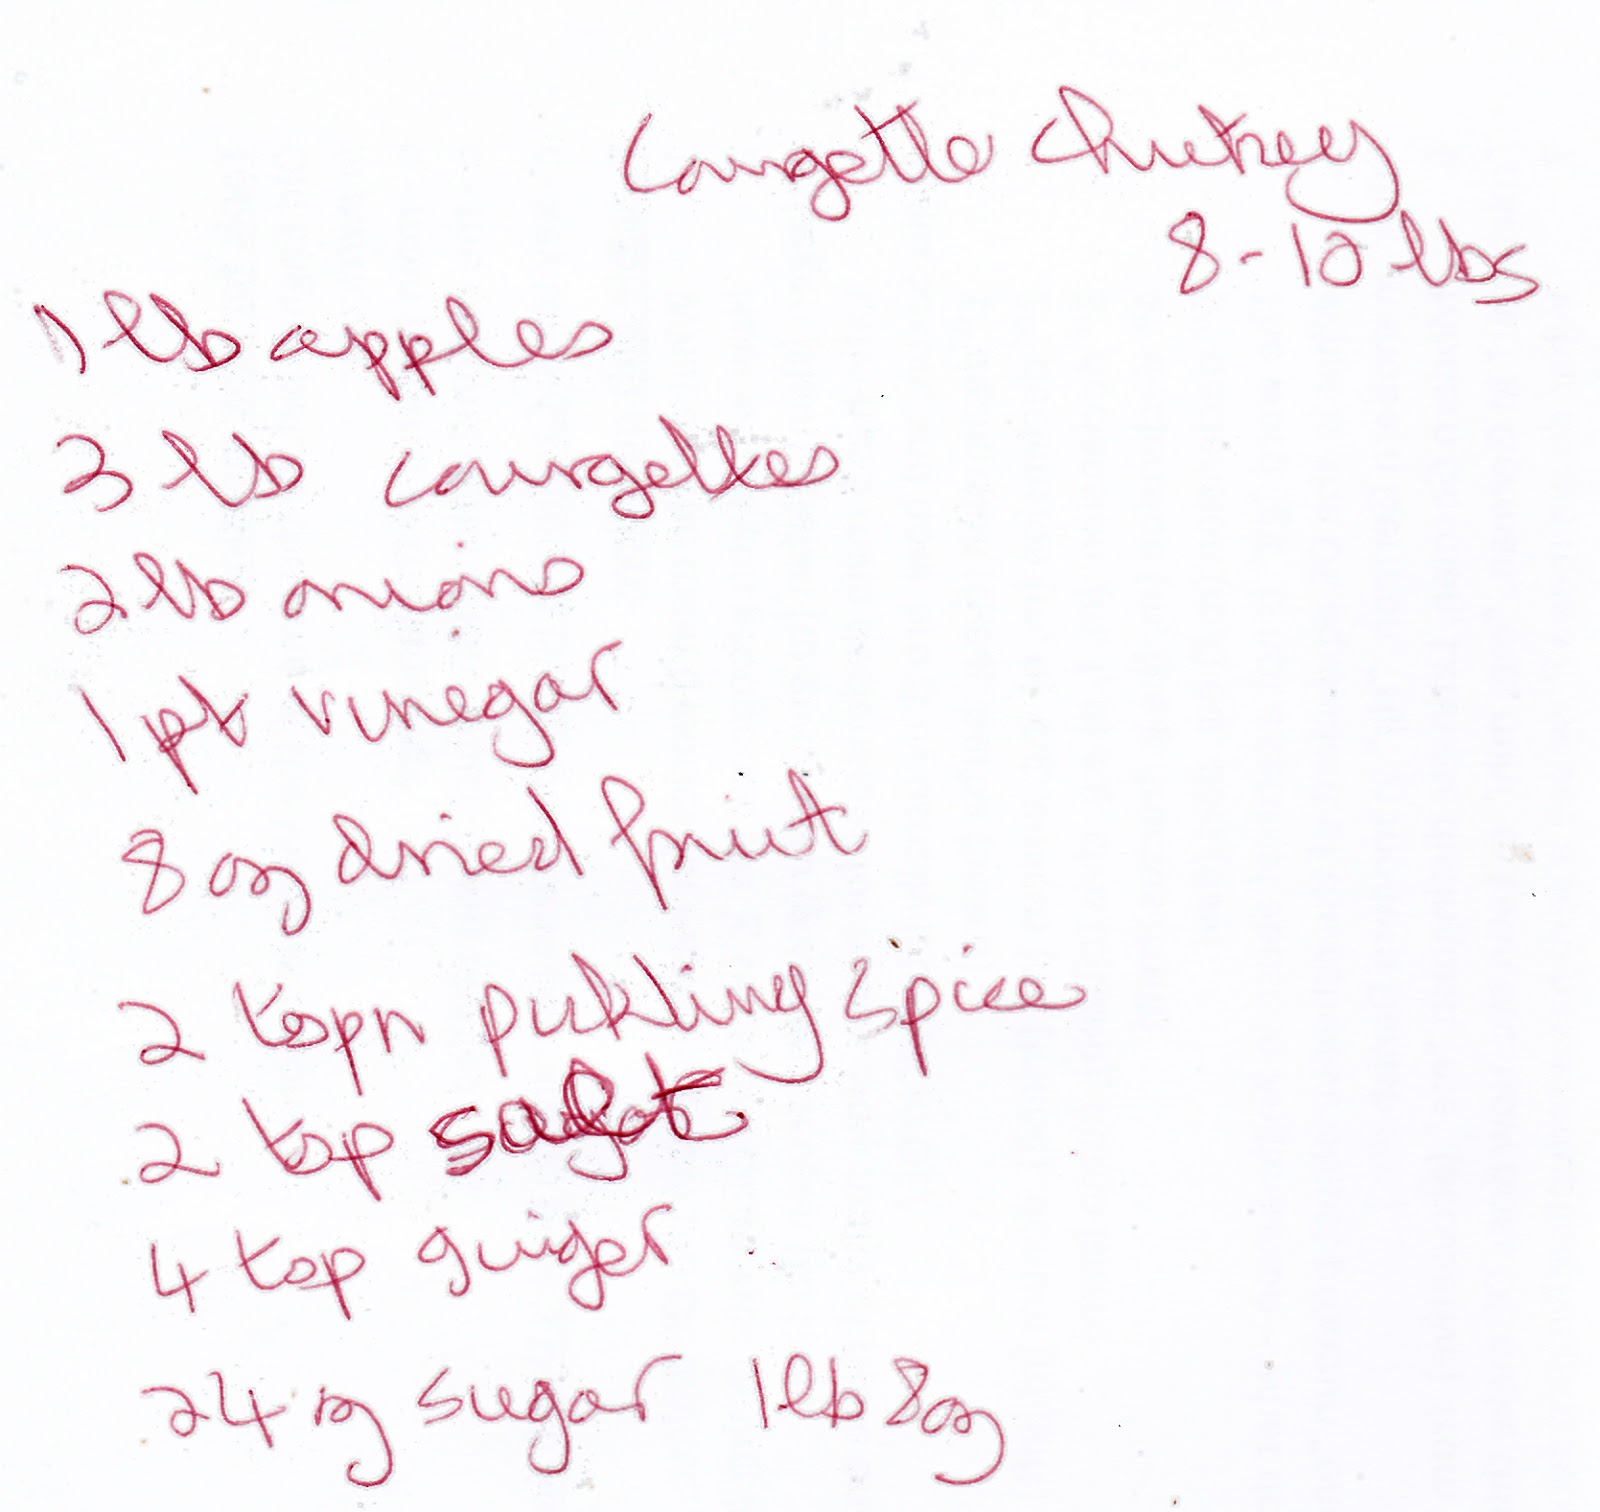 Courgette Chutney
8-10 lbs
1 lb apples
3 lb courgettes
2 lb onions
1 pt vinegar
8 oz dried fruit
2 tspn pickling spice
2 tsp salt
4 tsp ginger
24 oz sugar 1 lb 8 oz